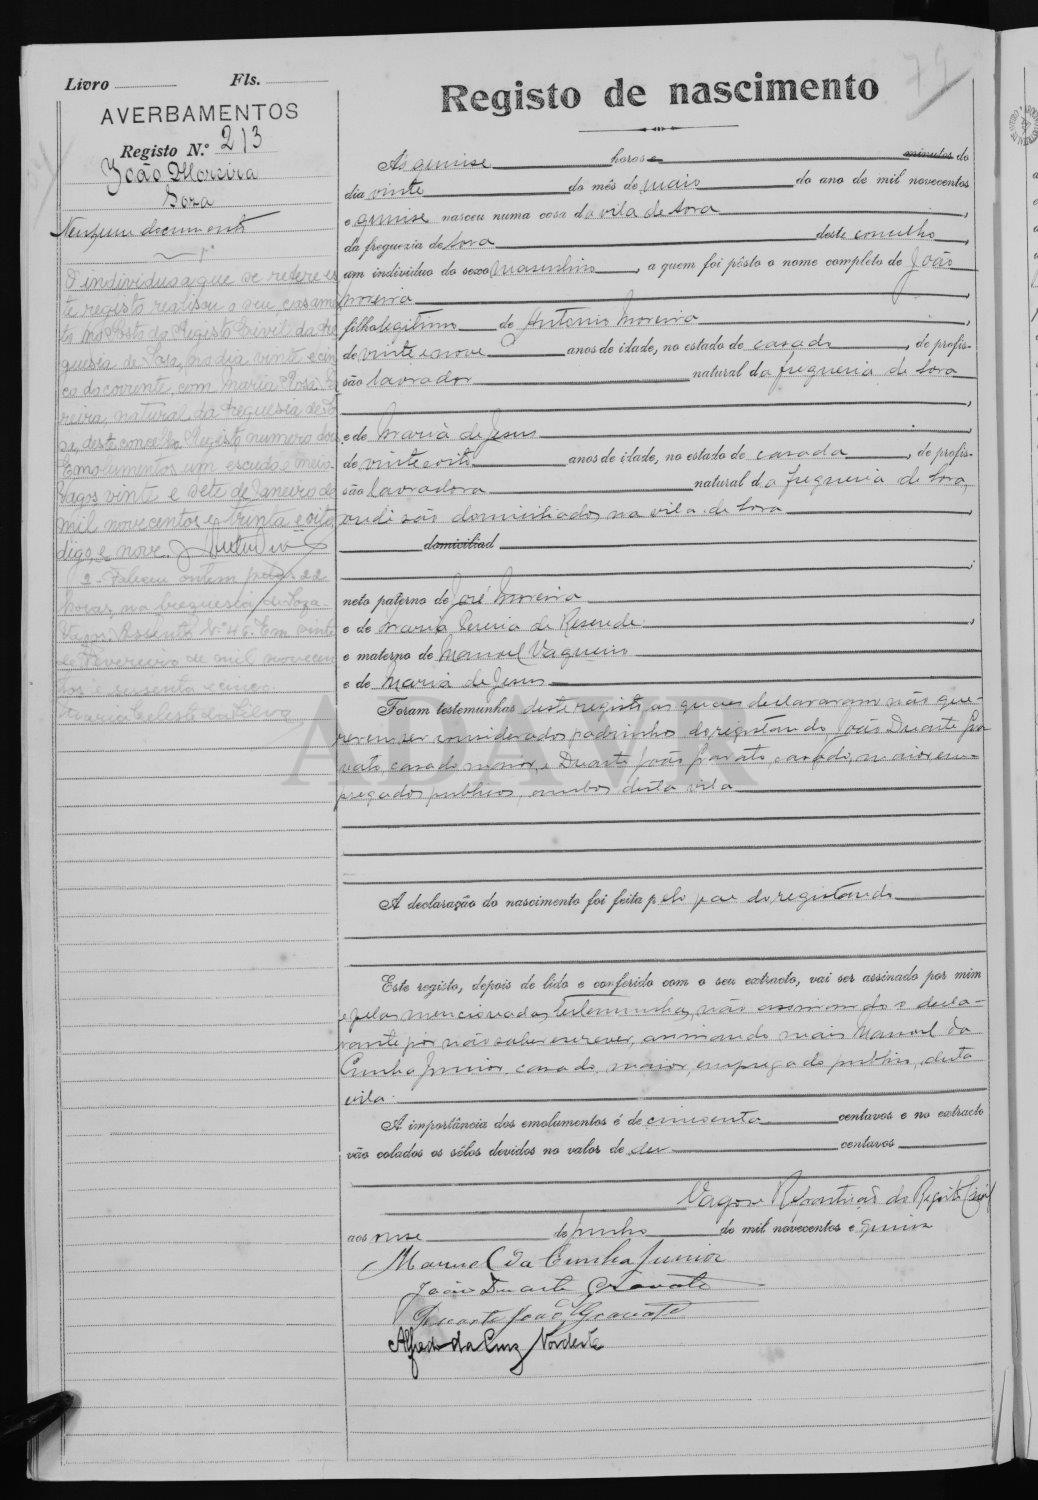 79
Livro Fls.
AVERBAMENTOS
Registo N.º 213
João Moreira
Soza
Nenhum documento
1º
O individuo a que se refere es
te registo realisou o seu casamen
to no Posto do Registo Civil da fre
guesia de Soza, no dia vinte e cin
co do corrente, com Maria Rosa Fe
reira, natural da freguesia de So
za, deste concelho. Registo numero dois
Emolumentos um escudo e meio.
Vagos vinte e sete de Janeiro de
mil novecentos e trinta e oito,
digo, e nove.
2. Faleceu ontem pelas 22
horas, na freguesia de Soza-
Vagos. Assento Nº 46. Em vinte
de Fevereiro de mil novecen
tos e sessenta e cinco.
Maria Celeste da Silva
Registo de nascimento
Às quinze horas e minutos do
dia vinte do mês de maio do ano de mil novecentos
e quinze nasceu numa casa da vila de Sora,
da freguezia de Sora deste concelho,
um indivíduo do sexo masculino, a quem foi pôsto o nome completo de João
Moreira,
filho legitimo de Antonio Moreira,
de vinte e nove anos de idade, no estado de casado, de profis-
são lavrador natural da freguesia de Sora
,
e de Maria de Jesus,
de vinte e oito anos de idade, no estado de casada, de profis-
são lavradora natural da freguesia de Sora,
onde são domiciliados na vila de Sora,
domiciliad
;
neto paterno de José Moreira
e de Maria Pereira de Resende,
e materno de Manoel Vagueiro
e de Maria de Jesus
Foram testemunhas deste registo, as quaes declararam não que-
rerem ser considerados padrinhos do registando, João Duarte Gra
vato, casado, menor, e Duarte João Gravato, casado, maior em-
pregados publicos, ambos desta vila
A declaração do nascimento foi feita pelo pae do registando
Este registo, depois de lido e conferido com o seu extracto, vai ser assinado por mim
e pelas mencionadas testemunhas, não assinando o decla-
rante por não saber escrever, assinando mais Manoel da
Cunha Junior, casado, maior, empregado publico, desta
vila.
A importância dos emolumentos é de cincoenta centavos e no extracto
vão colados os sêlos devidos no valor de dez centavos
Vagos e Repartição do Registo Civil
aos onze de junho de mil novecentos e quinze
Manuel da Cunha Junior
João Duarte Gravato
Duarte João Gravato
Alfredo da Cruz Nordeste